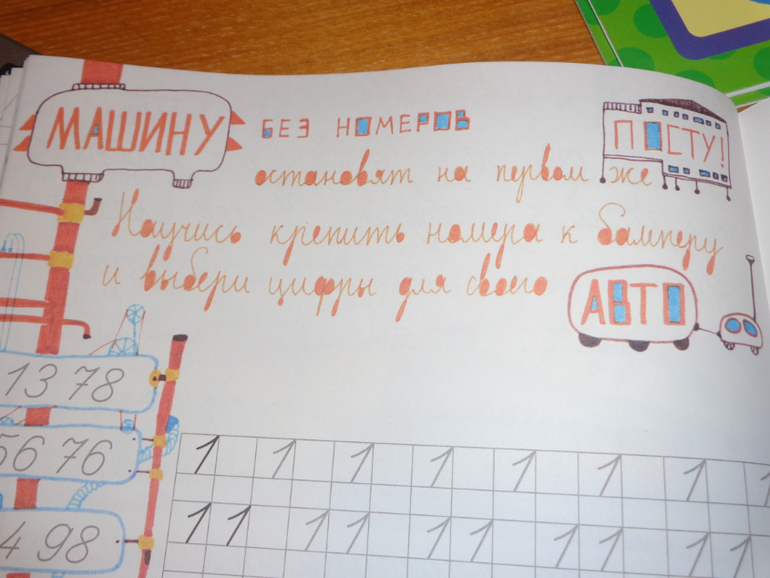 МАШИНУ БЕЗ НОМЕРОВ
остановят на первом же ПОСТУ!
Научись крепить номера к бамперу
и выбери цифры для своего АВТО
13 78
56 76
4 98
1 1 1 1 1 1 1 1
11 11 11 11 11